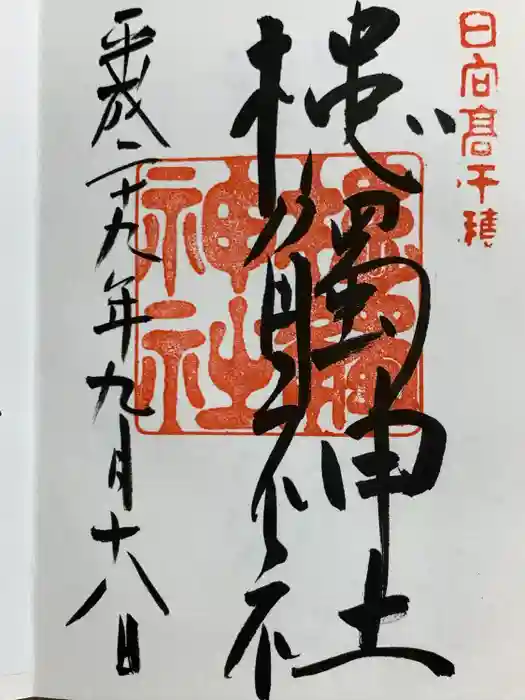 日向髙千穂
槵觸神社
槵觸
神社
平成二十九年九月十八日